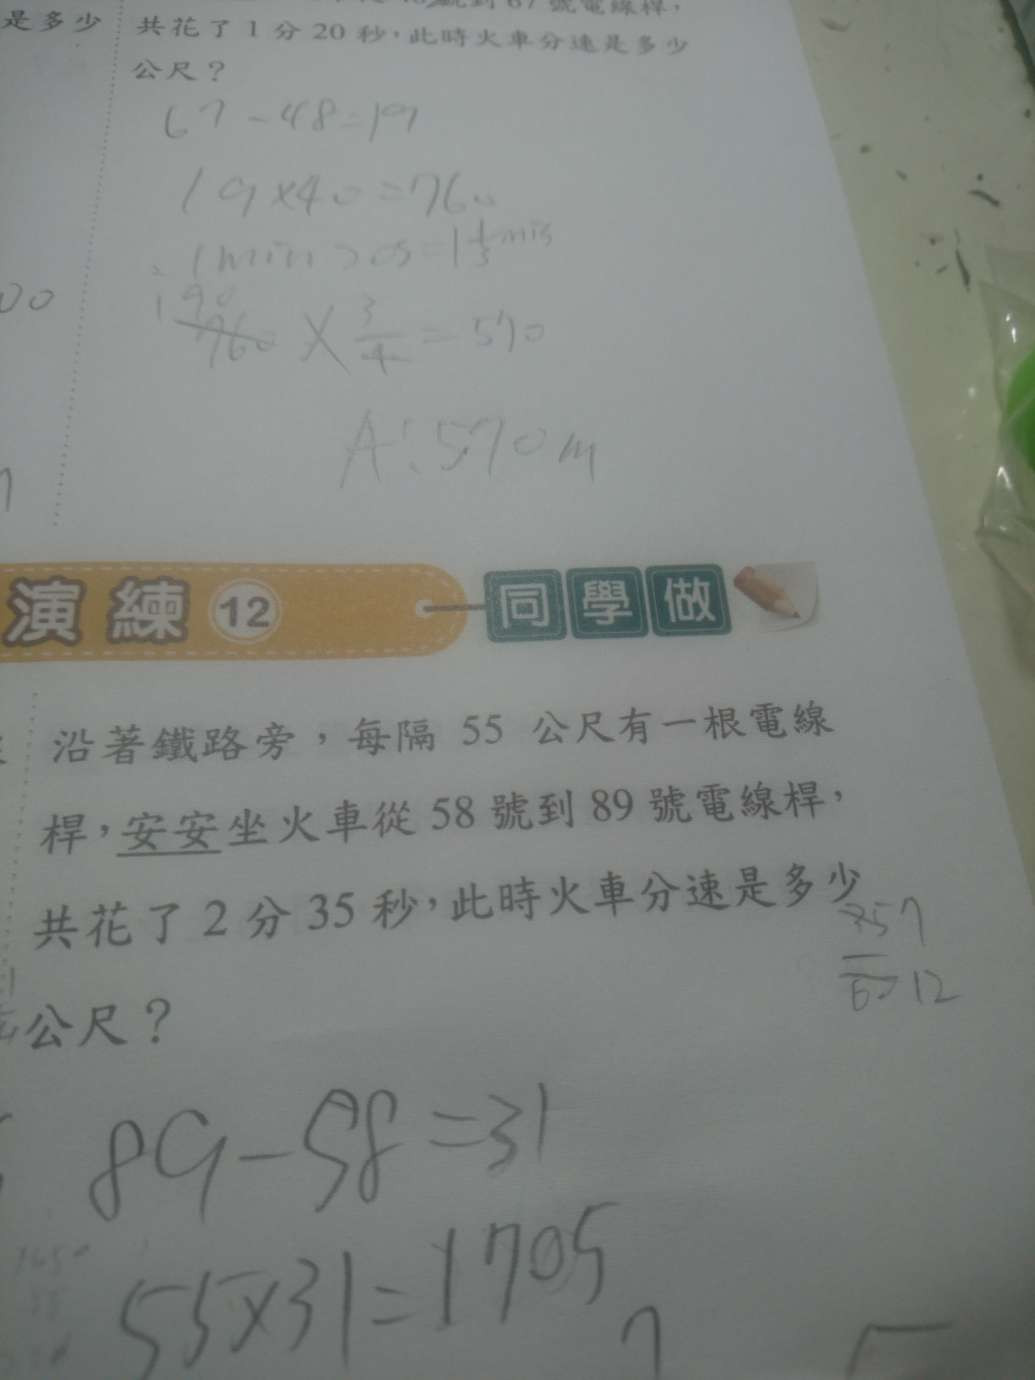 號到67號電線桿，
是多少 共花了1分20秒，此時火車分速是多少
公尺？
67-48=19
19×40=760
1min20s=1⅓min
00
190
760×3/4=570
A:570m
演練 12 同學做
沿著鐵路旁，每隔 55 公尺有一根電線
桿，安安坐火車從58號到89號電線桿，
共花了2分35秒，此時火車分速是多少
公尺？
12
89-58=31
55×31=1705